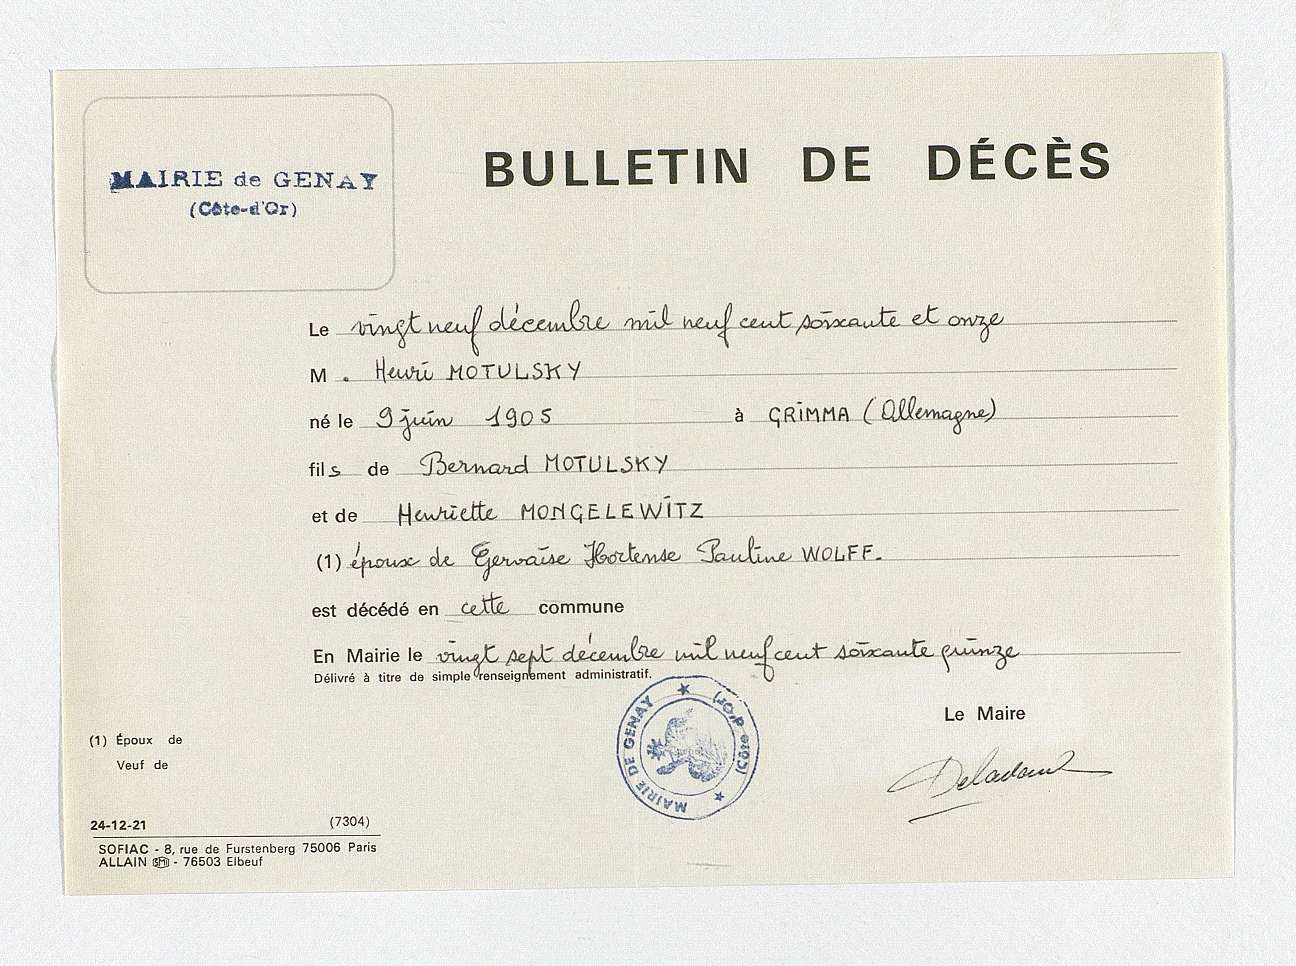 MAIRIE de GENAY
(Côte-d'Or)
BULLETIN DE DÉCÈS
Le vingt neuf décembre mil neuf cent soixante et onze
M. Henri MOTULSKY
né le 9 juin 1905 à GRIMMA (Allemagne)
fils de Bernard MOTULSKY
et de Henriette MONGELEWITZ
(1) époux de Gervaise Hortense Pauline WOLFF.
est décédé en cette commune
En Mairie le vingt sept décembre mil neuf cent soixante quinze
Délivré à titre de simple renseignement administratif.
MAIRIE DE GENAY
Le Maire
(1) Époux de
Veuf de
24-12-21 (7304)
SOFIAC - 8, rue de Furstenberg 75006 Paris
ALLAIN - 76503 Elbeuf